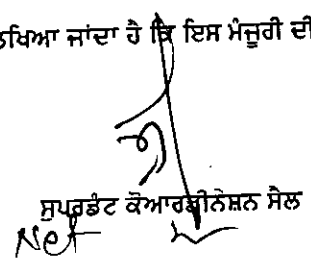 ਲਿਖਿਆ ਜਾਂਦਾ ਹੈ ਕਿ ਇਸ ਮੰਜੂਰੀ ਦੀ
ਸੁਪਰਡੰਟ ਕੋਆਰਡੀਨੇਸ਼ਨ ਸੈਲ